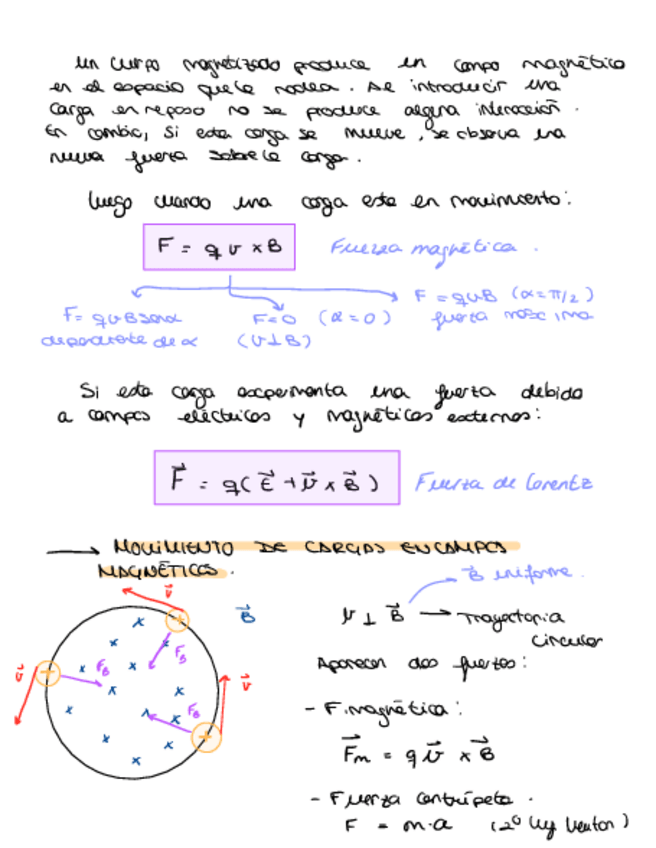 un cuerpo magnetizado produce un campo magnético
en el espacio que le rodea. Al introducir una
carga en reposo no se produce alguna interacción.
En cambio, si esta carga se mueve, se observa una
nueva fuerza sobre la carga.
luego cuando una carga esta en movimiento:
F = q v x B Fuerza magnética.
F = qvB senα F=0 (α=0) F = qvB (α=π/2)
dependiente de α (v⊥B) fuerza máxima
Si esta carga experimenta una fuerza debido
a campos eléctricos y magnéticos externos:
F⃗ = q(E⃗ + v⃗ x B⃗) Fuerza de Lorentz
→ MOVIMIENTO DE CARGAS EN CAMPOS
MAGNÉTICOS.
B⃗ uniforme.
v⃗ B⃗ v ⊥ B⃗ → Trayectoria
circular
F_B
v⃗ F_B v⃗ Aparecen dos fuerzas:
F_B - F. magnética:
F⃗m = q v⃗ x B⃗
- Fuerza centrípeta.
F = m·a (2º ley Newton)